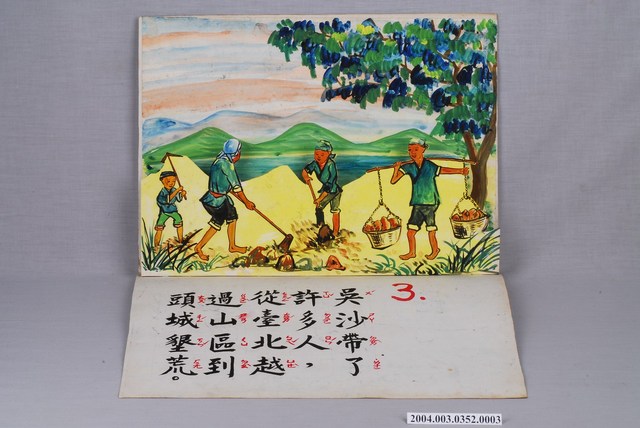 3.
吳沙帶了
許多人，
從臺北越
過山區到
頭城墾
荒。
2004.003.0352.0003